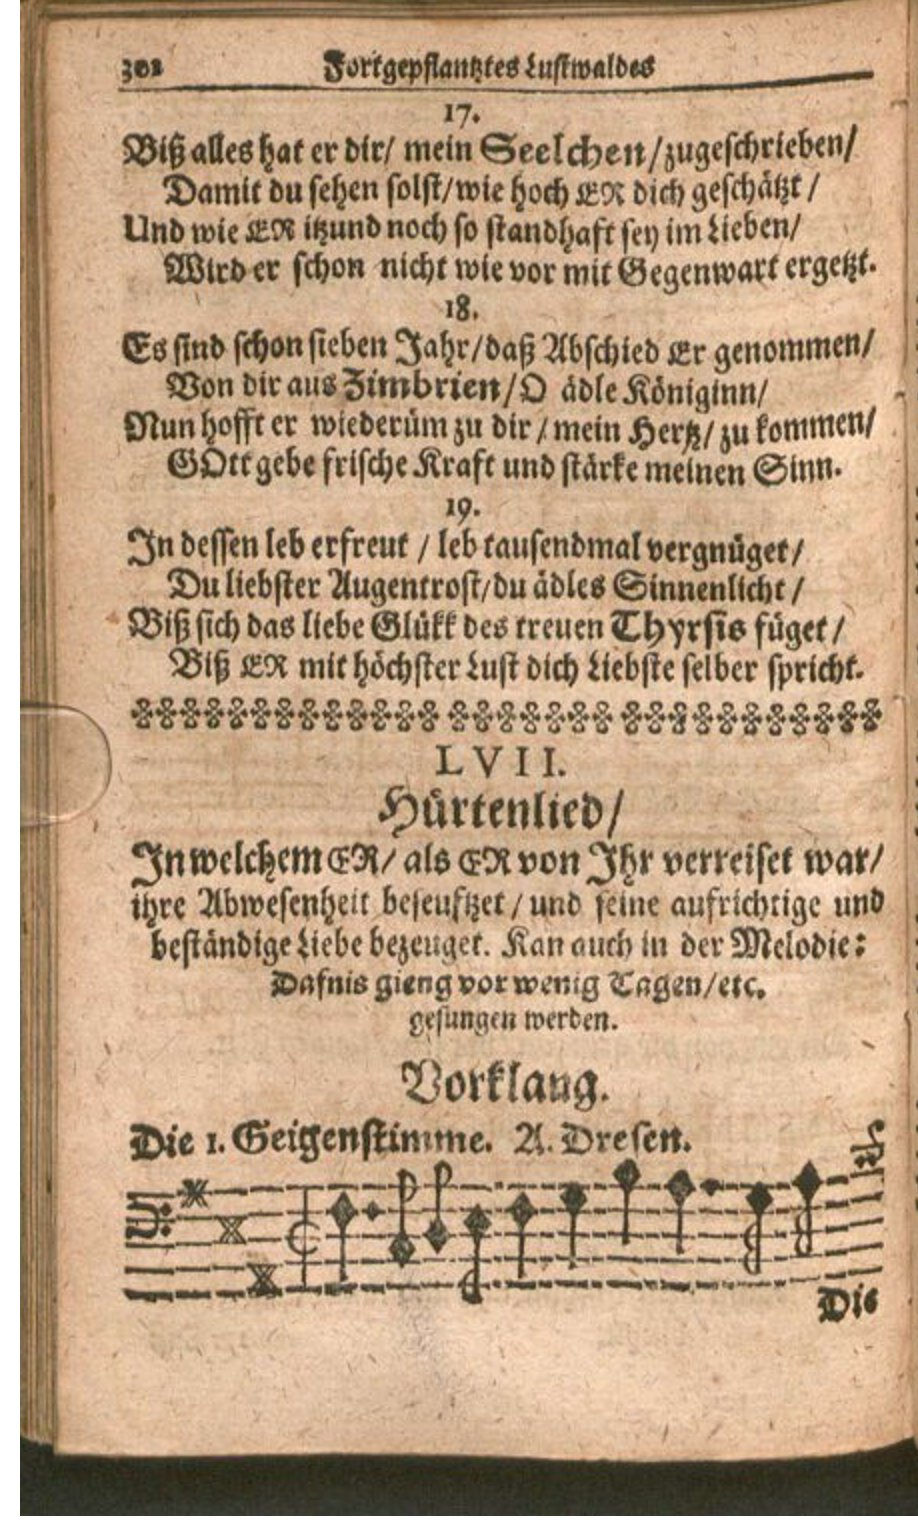 302 Fortgepflantztes Lustwaldes
17.
Biß alles hat er dir/ mein Seelchen/zugeschrieben/
Damit du sehen solst/wie hoch ER dich geschätzt/
Und wie ER itzund noch so standhaft sey im Lieben/
Wird er schon nicht wie vor mit Gegenwart ergetzt.
18.
Es sind schon sieben Jahr/daß Abschied Er genommen/
Von dir aus Zimbrien/O ädle Königinn/
Nun hofft er wiederüm zu dir/mein Hertz/zu kommen/
GOtt gebe frische Kraft und stärke meinen Sinn.
19.
In dessen leb erfreut / leb tausendmal vergnüget/
Du liebster Augentrost/du ädles Sinnenlicht/
Biß sich das liebe Glükk des treuen Thyrsis füget/
Biß ER mit höchster Lust dich Liebste selber spricht.
LVII.
Hürtenlied/
In welchem ER/ als ER von Ihr verreiset war/
ihre Abwesenheit beseuftzet/und seine aufrichtige und
beständige Liebe bezeuget. Kan auch in der Melodie:
Dafnis gieng vor wenig Tagen/etc.
gesungen werden.
Vorklang.
Die 1. Geigenstimme. A. Dresen.
Die